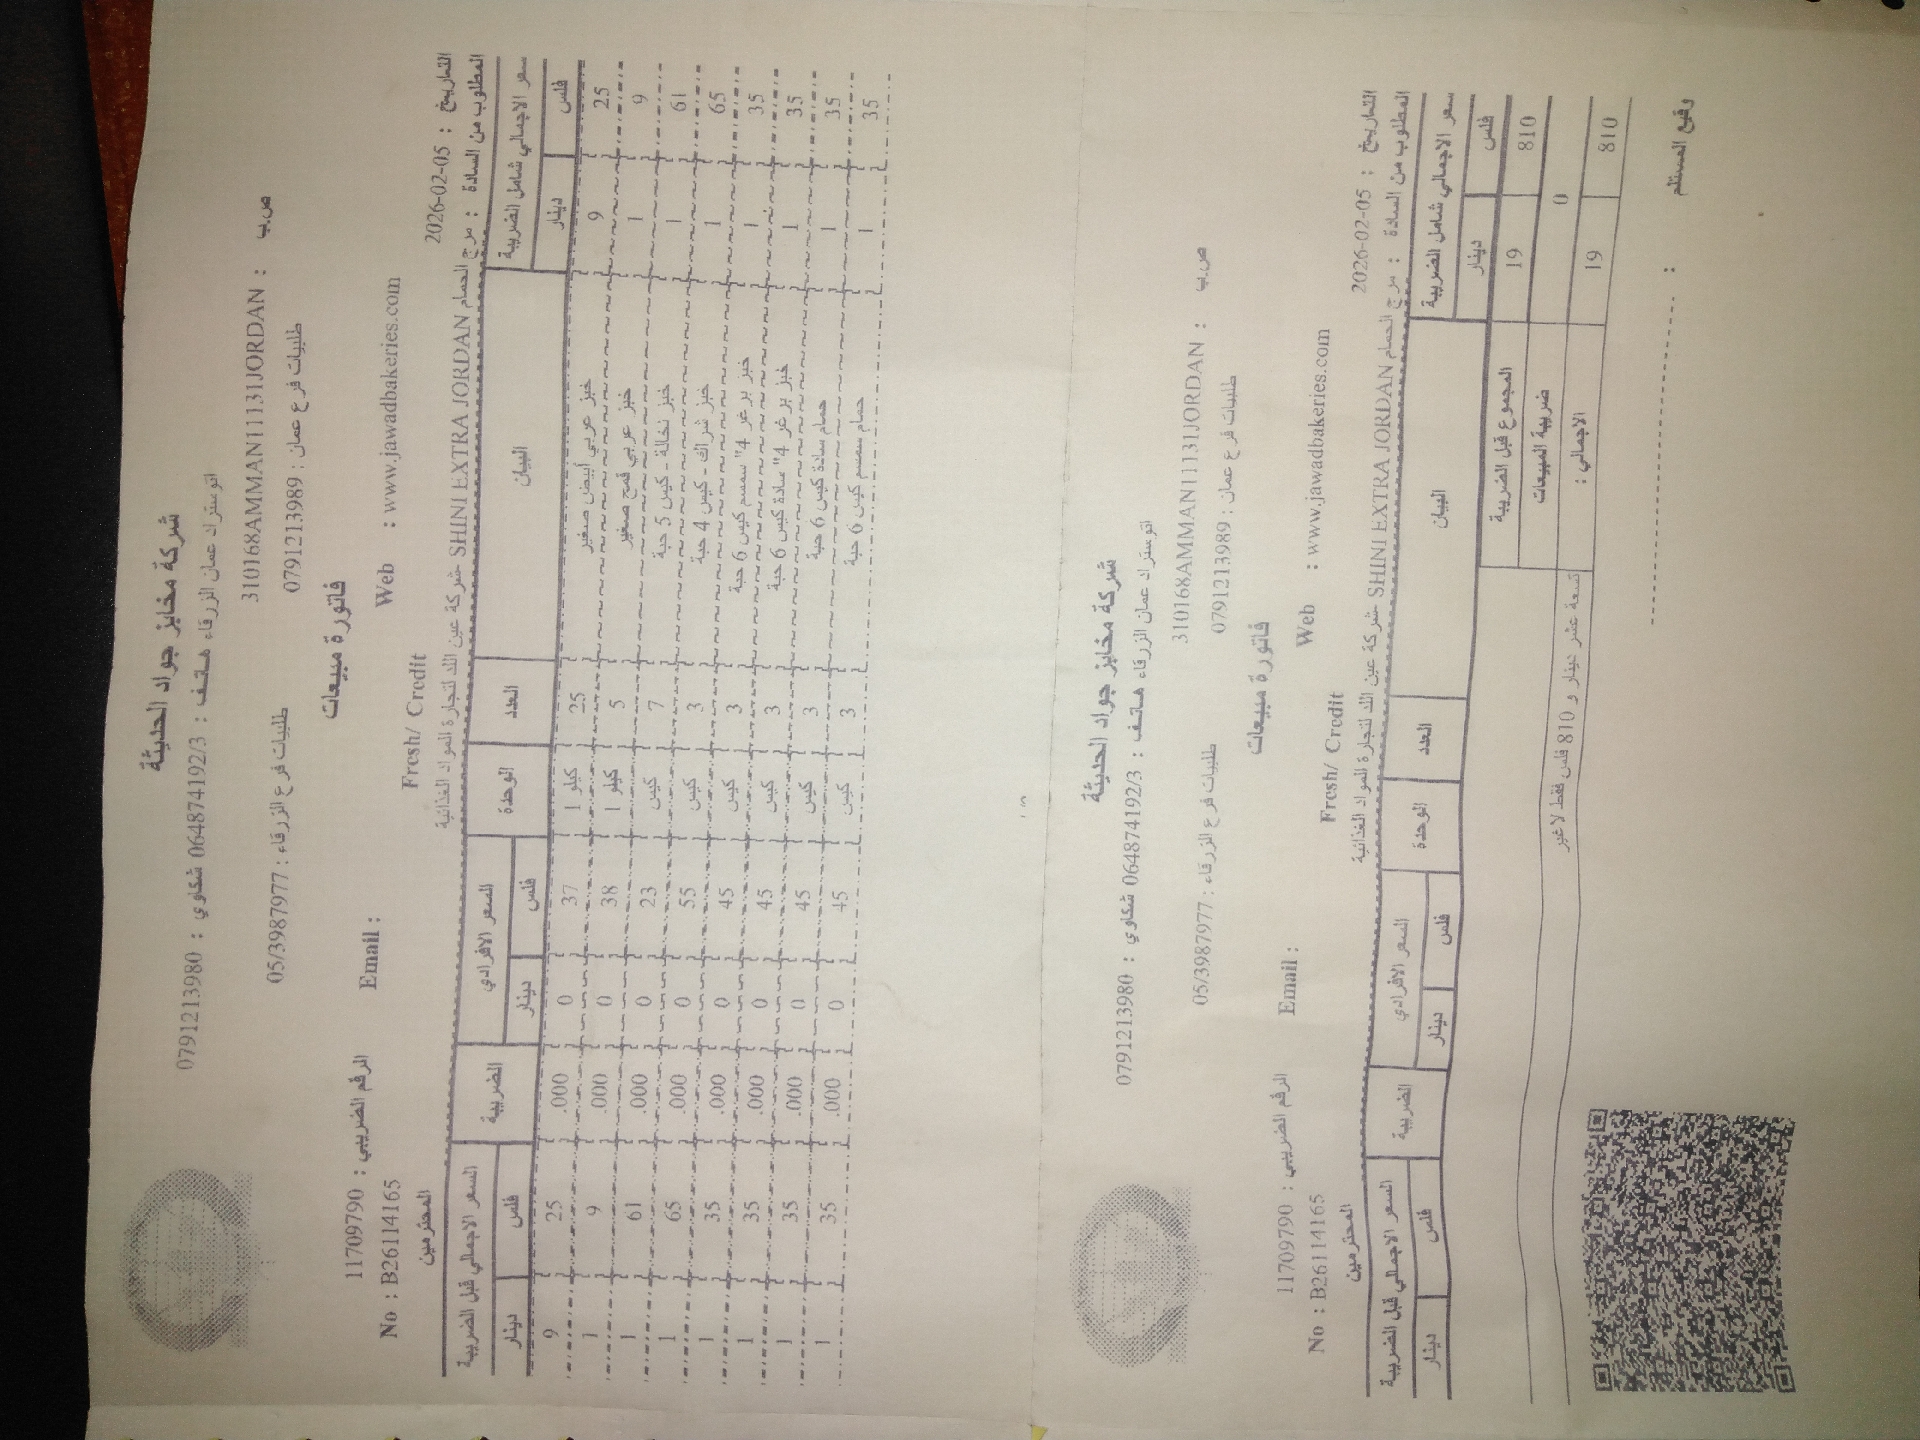 شركة مخابز جواد الحديثة
اتوستراد عمان الزرقاء هاتف : 064874192/3 شكاوي : 0791213980
ص.ب : 310168AMMAN11131JORDAN
طلبيات فرع عمان : 0791213989 طلبيات فرع الزرقاء : 05/3987977
فاتورة مبيعات
الرقم الضريبي : 11709790
Web : www.jawadbakeries.com Email :
No : B26114165
Fresh/ Credit
التاريخ : 2026-02-05
المطلوب من السادة : مرج الحمام SHINI EXTRA JORDAN -شركة عين اللد لتجارة المواد الغذائية المحترمين
سعر الاجمالي شامل الضريبة البيان العدد الوحدة السعر الافرادي الضريبة السعر الاجمالي قبل الضريبة
فلس دينار فلس دينار فلس دينار
25 9 خبز عربي أبيض صغير 25 كيلو 1 37 0 .000 25 9
9 1 خبز عربي قمح صغير 5 كيلو 1 38 0 .000 9 1
61 1 خبز نخالة - كيس 5 حبة 7 كيس 23 0 .000 61 1
65 1 خبز شراك - كيس 4 حبة 3 كيس 55 0 .000 65 1
35 1 خبز برغر 4" سمسم كيس 6 حبة 3 كيس 45 0 .000 35 1
35 1 خبز برغر 4" سادة كيس 6 حبة 3 كيس 45 0 .000 35 1
35 1 حمام سادة كيس 6 حبة 3 كيس 45 0 .000 35 1
35 1 حمام سمسم كيس 6 حبة 3 كيس 45 0 .000 35 1
شركة مخابز جواد الحديثة
اتوستراد عمان الزرقاء هاتف : 064874192/3 شكاوي : 0791213980
ص.ب : 310168AMMAN11131JORDAN
طلبيات فرع عمان : 0791213989 طلبيات فرع الزرقاء : 05/3987977
فاتورة مبيعات
الرقم الضريبي : 11709790
Web : www.jawadbakeries.com Email :
No : B26114165
Fresh/ Credit
التاريخ : 2026-02-05
المطلوب من السادة : مرج الحمام SHINI EXTRA JORDAN -شركة عين اللد لتجارة المواد الغذائية المحترمين
سعر الاجمالي شامل الضريبة البيان العدد الوحدة السعر الافرادي الضريبة السعر الاجمالي قبل الضريبة
فلس دينار فلس دينار فلس دينار
810 19 المجموع قبل الضريبة
0 ضريبة المبيعات
810 19 الاجمالي : تسعة عشر دينار و 810 فلس فقط لا غير
وقيع المستلم : ------------------